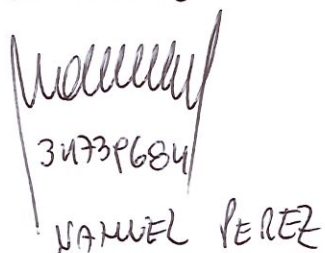 34739684
NAHUEL PEREZ